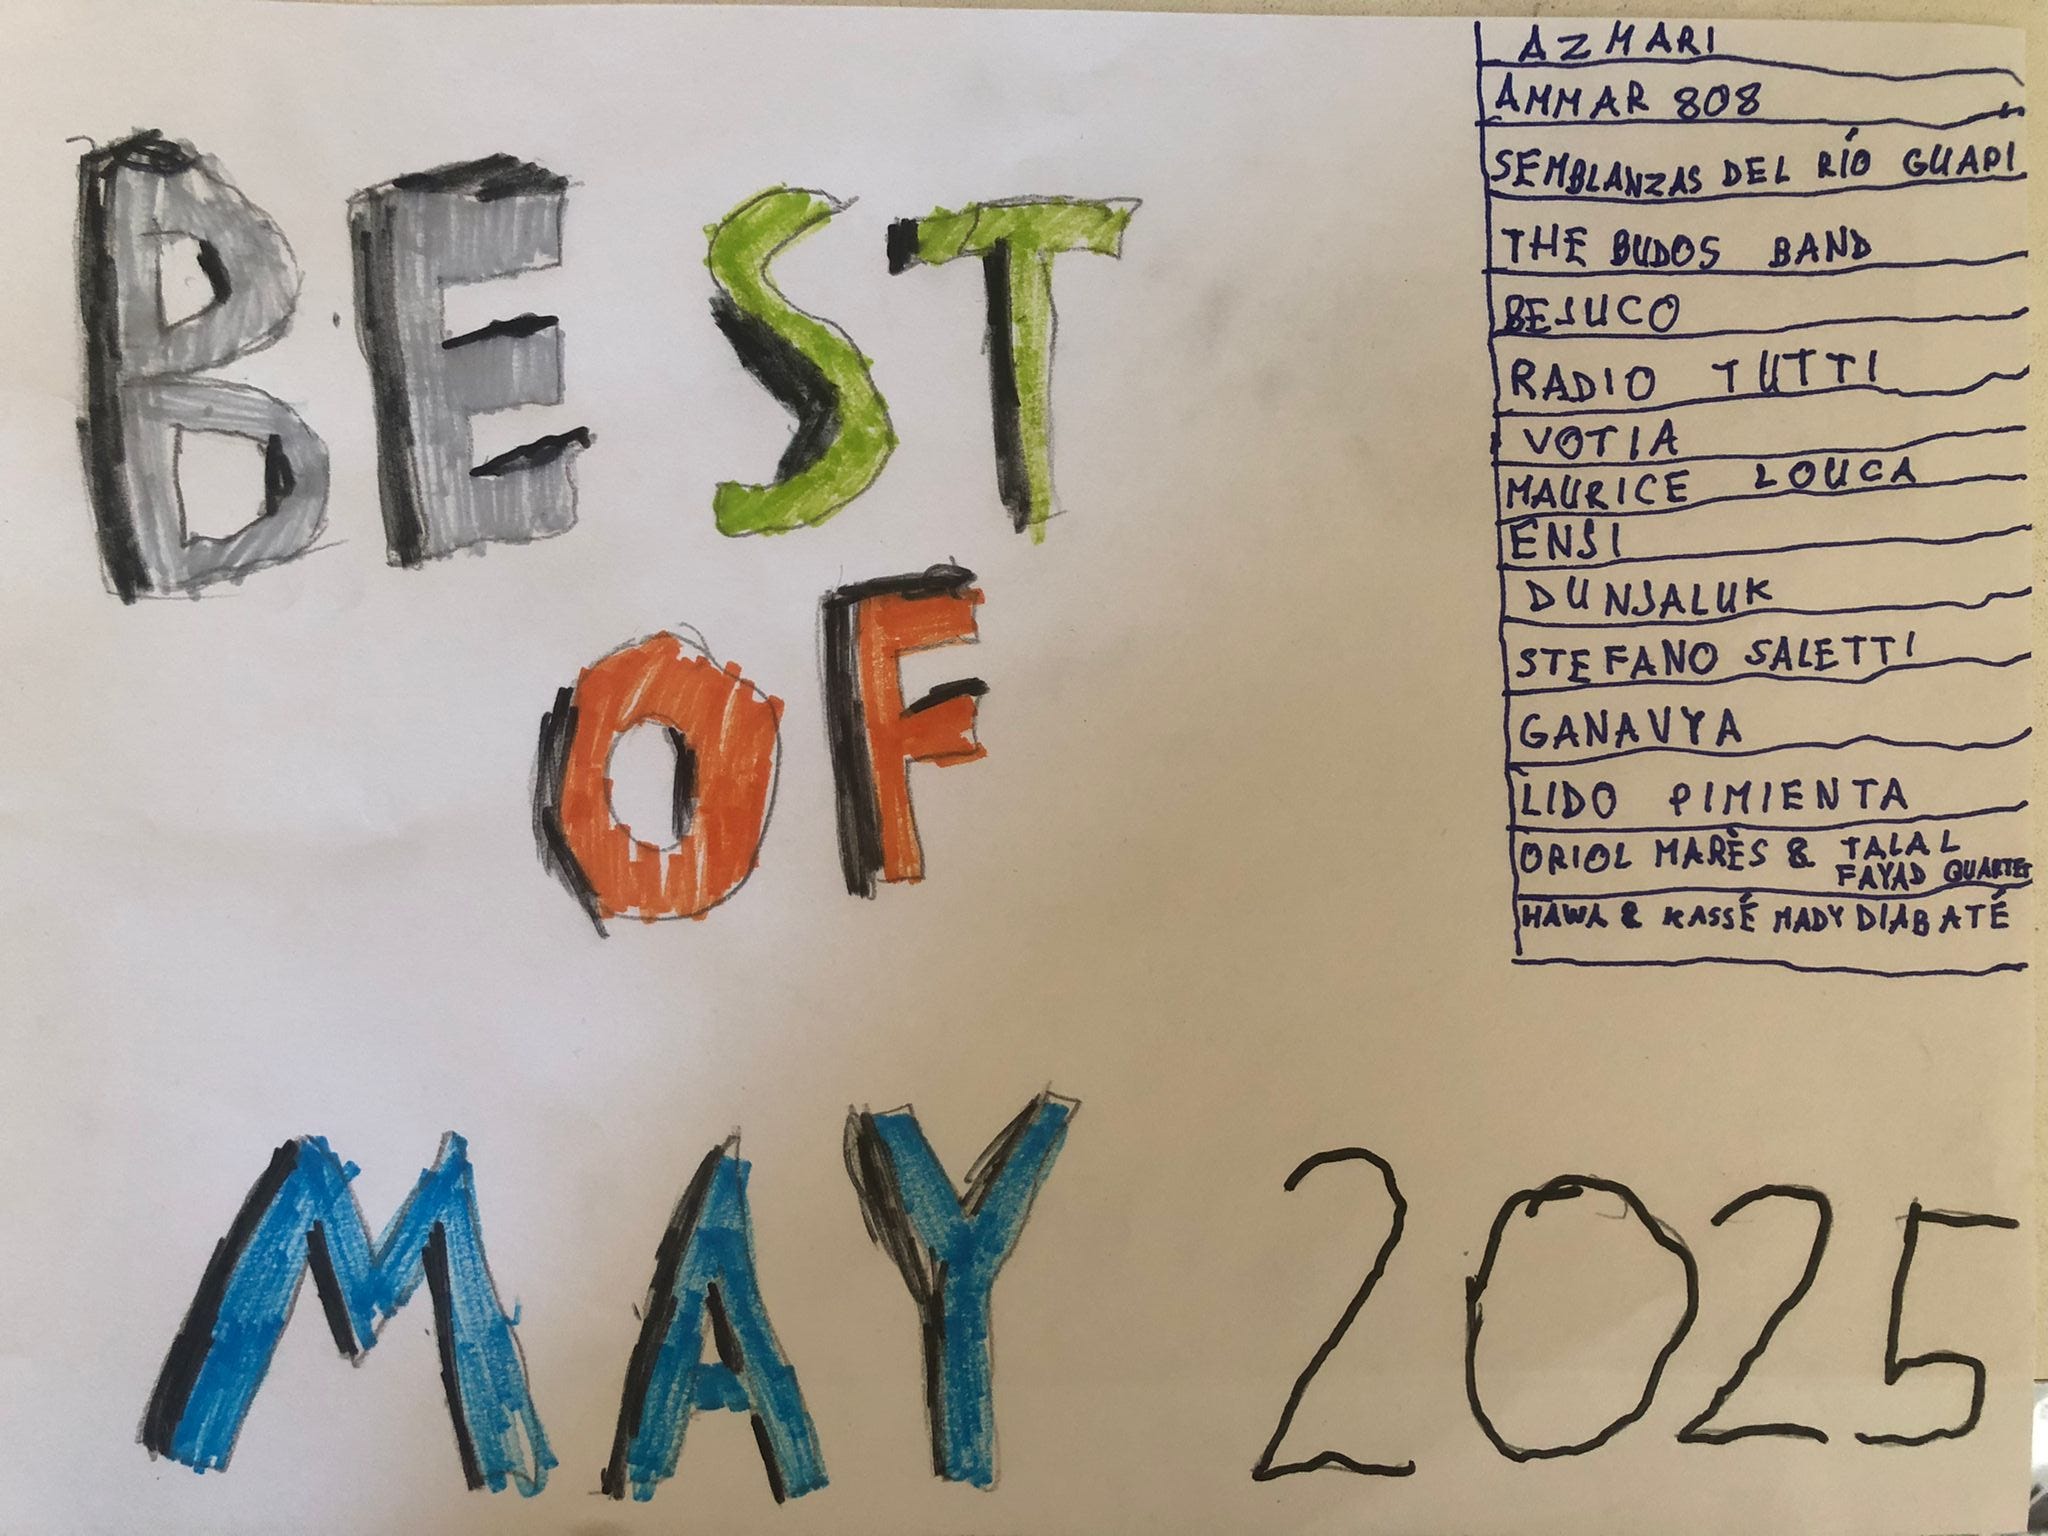 BEST
OF
MAY 2025
AZMARI
AMMAR 808
SEMBLANZAS DEL RÍO GUAPI
THE BUDOS BAND
BEJUCO
RADIO TUTTI
VOTIA
MAURICE LOUCA
ENSI
DUNJALUK
STEFANO SALETTI
GANAVYA
LIDO PIMIENTA
ORIOL MARÈS & TALAL
FAYAD QUARTET
HAWA & KASSÉ MADY DIABATÉ